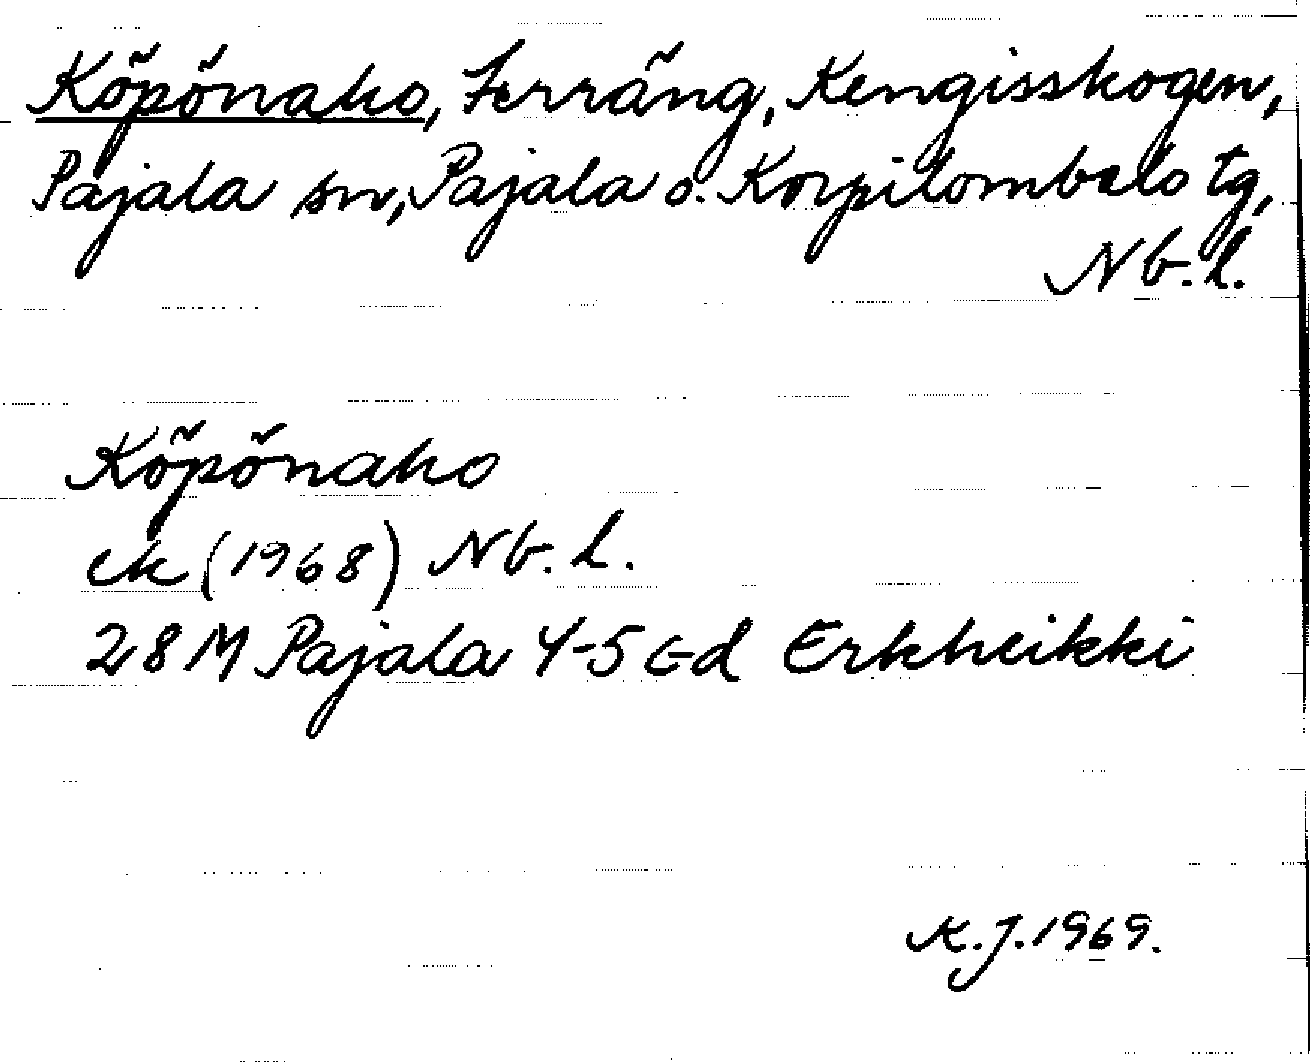 Köpönaho, Terräng, Kengisskogen,
Pajala sn, Pajala o. Korpilombolo tg,
Nb. l.
Köpönaho
ek (1968) Nb. l.
28M Pajala 4-5 c-d Erkheikki
K.J. 1969.